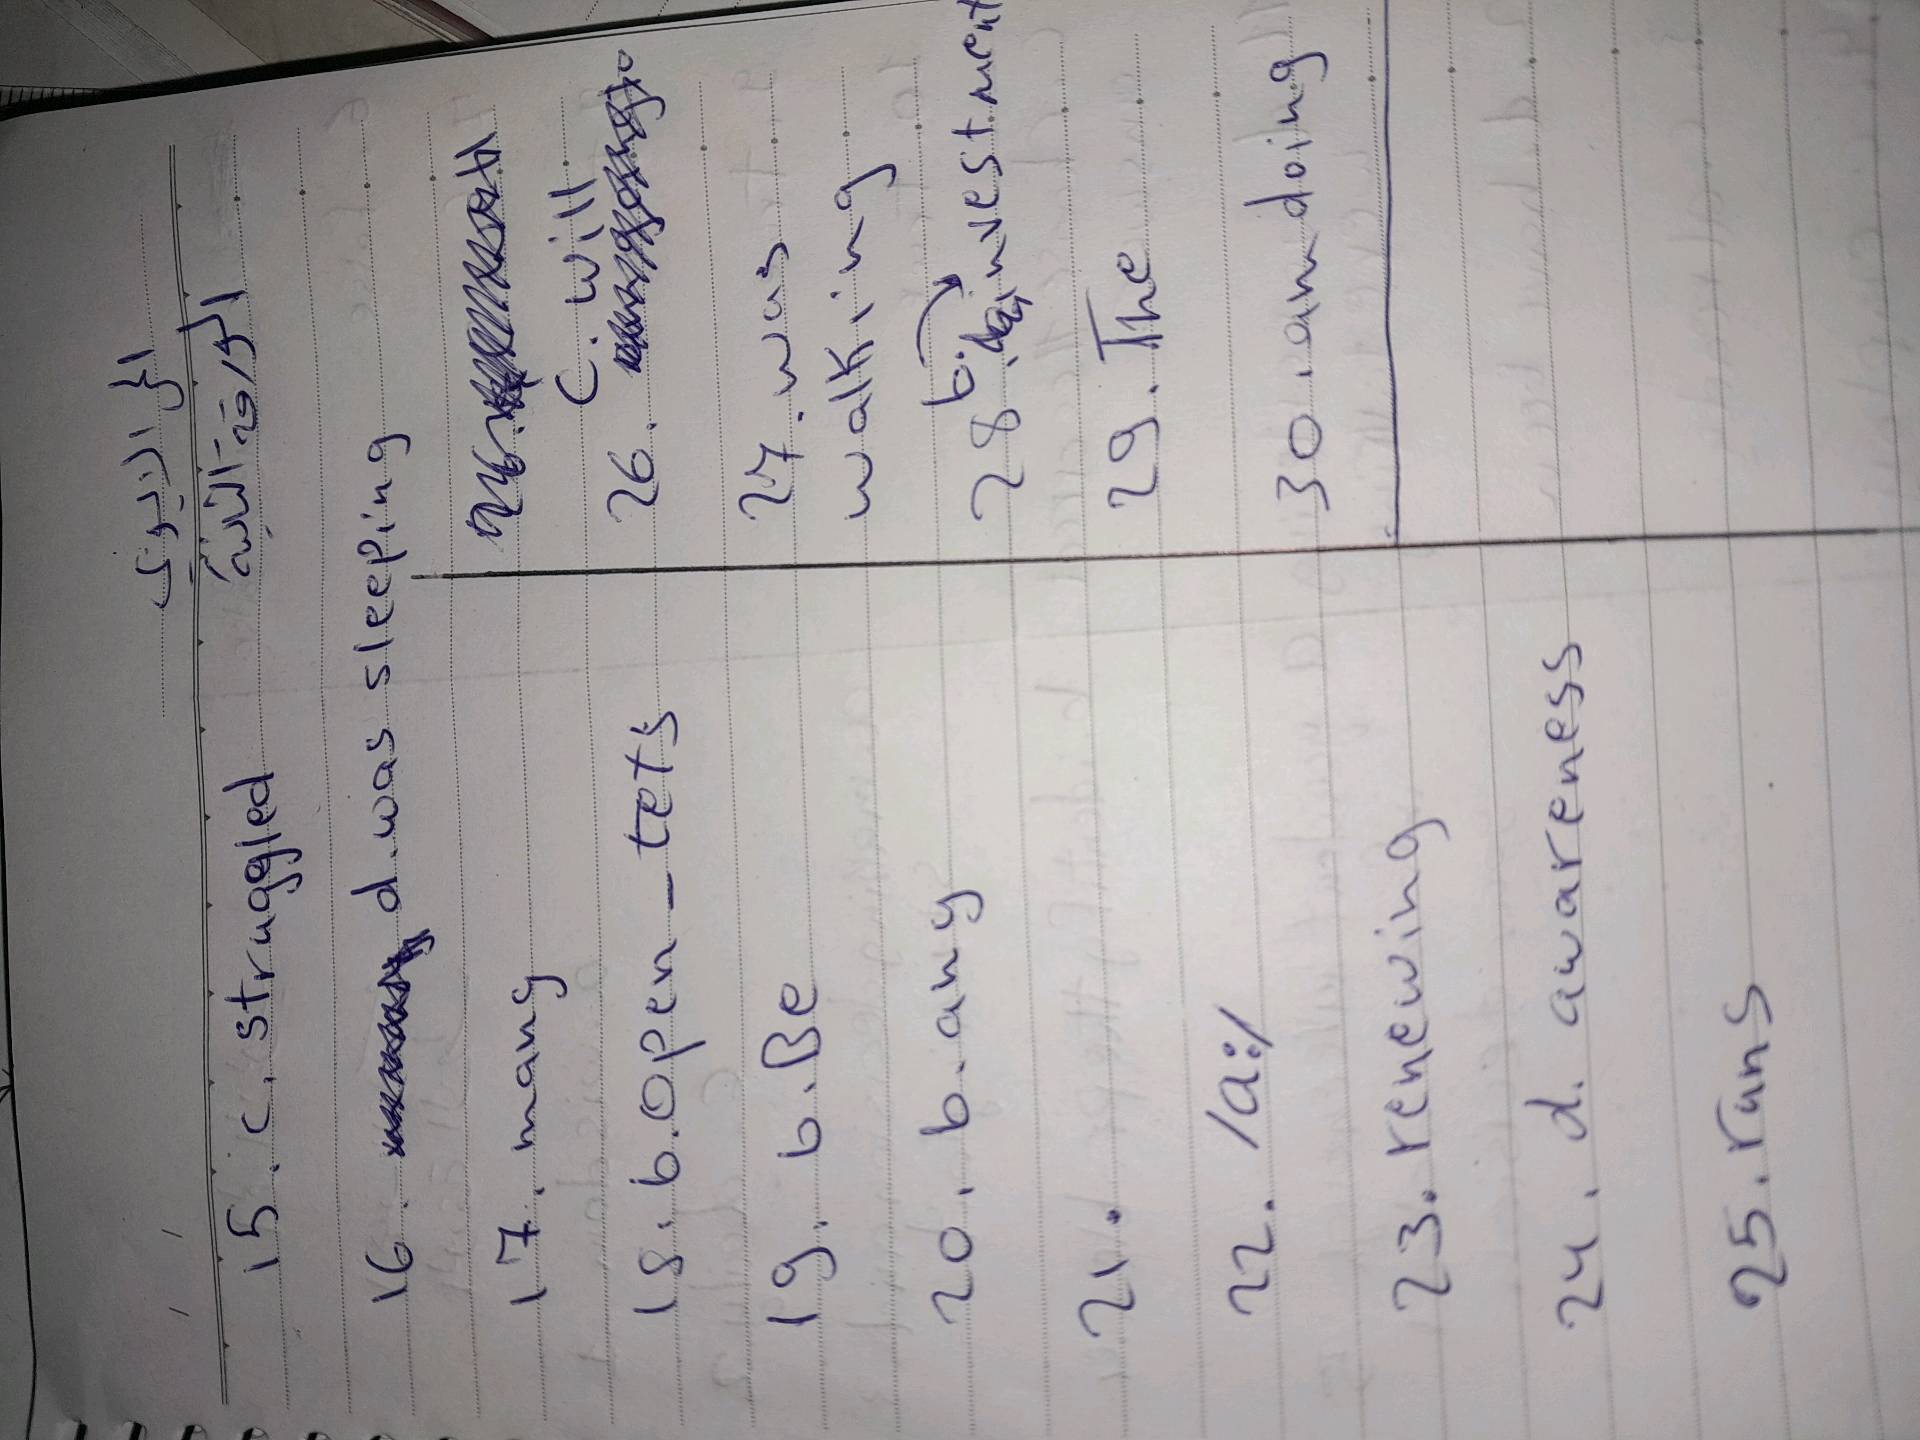 15. c. struggled
16. d. was sleeping
17. many
18. b. open-tets
19. b. Be
20. b. any
21.
22. /a:/
23. renewing
24. d. awareness
25. runs
26. c. will
27. was
walking
28. b. investment
29. The
30. am doing